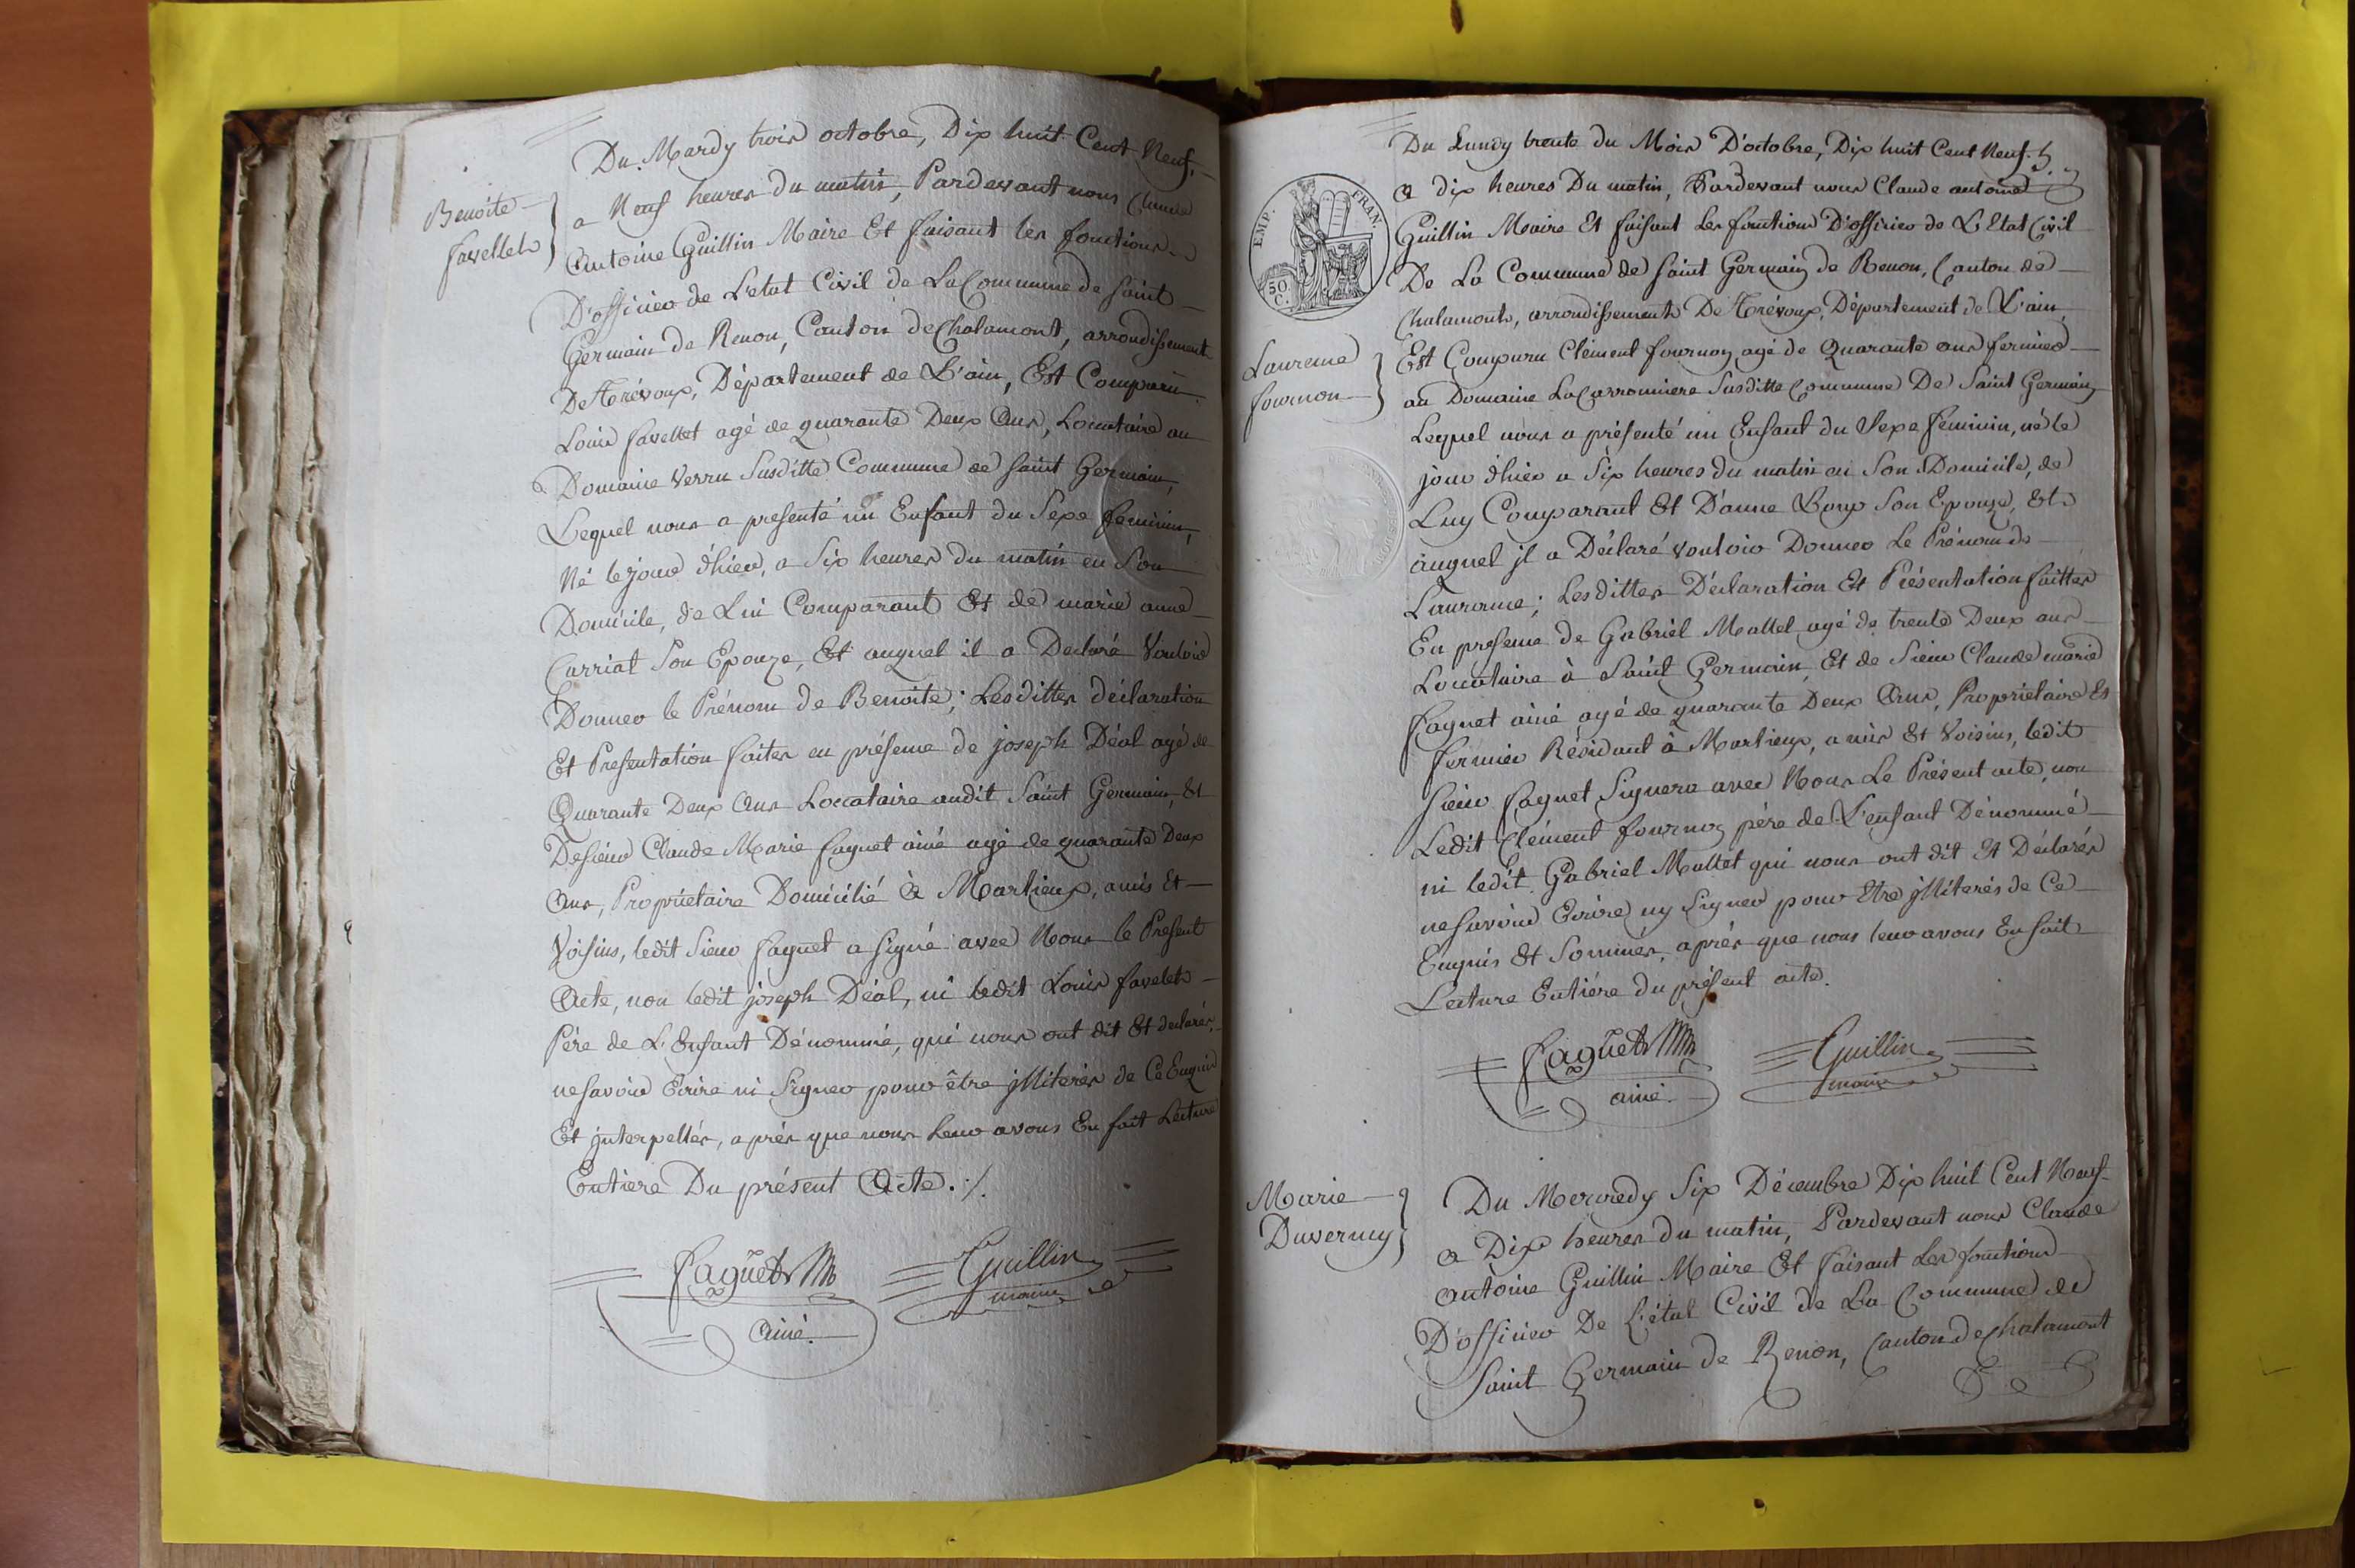 Benoîte
favellet
Du Mardy trois octobre, Dix huit Cent Neuf.
a Neuf heures du matin, Pardevant nous Claude
Antoine Guillin Maire Et faisant les fonctions
D'officier de L'etat Civil de La Commune de Saint
Germain de Renon, Canton de Chalamont, arrondissement
De Trévoux, Département de L'ain, Est Comparu
Louis favellet agé de quarante Deux Ans, Locataire au
Domaine Verru Susditte Commune de Saint Germain,
Lequel nous a presenté un Enfant du Sexe feminin,
Né le jour d'hier, a Six heures du matin en Son
Domicile, de Lui Comparant Et de marie anne
Carriat Son Epouze, Et auquel il a Declaré Vouloir
Donner le Prénom de Benoite; Lesdittes déclaration
Et Presentation faites en présence de joseph Déal agé de
Quarante Deux Ans Locataire audit Saint Germain, Et
De sieur Claude Marie faguet ainé agé de quarante Deux
Ans, Propriétaire Domicilié à Marlieux, amis Et
Voisins, ledit Sieur faguet a signé avec Nous le Present
Acte, non ledit joseph Déal, ni ledit Louis favelet
Père de L'Enfant Dénommé, qui nous ont dit Et declarés
ne Savoir Ecrire ni Signer pour être jlliterés de Ce Enquis
Et jnterpellés, après que nous Leur avons En fait Lecture
Entiere Du présent Acte ./.
faguet
Guillin
ainé.
maire
EMP. FRAN.
50 C.
Du Lundy trente du Mois D'octobre, Dix huit Cent Neuf
a dix heures Du matin, Pardevant nous Claude antoine
Guillin Maire Et faisant Les fonctions D'officier de L'Etat Civil
De La Commune de Saint Germain de Renon, Canton de
Chalamont, arrondissement De Trévoux, Département de L'ain,
Laurence
fournon
Est Comparu Clément fournon agé de Quarante ans fermier
au Domaine La Carronniere Susditte Commune De Saint Germain
Lequel nous a présenté un Enfant du Sexe féminin, né le
jour d'hier a Six heures du matin en Son Domicile, de
Luy Comparant Et D'anne Loup Son Epouze, Et
auquel jl a Déclaré vouloir Donner Le Prénom de
Laurence; Lesdittes Déclaration Et Présentation faittes
En presence de Gabriel Mallet agé de trente Deux ans
Locataire à Saint Germain, Et de Sieur Claude marie
faguet ainé agé de quarante Deux Ans, Proprietaire Et
fermier Résidant à Marlieux, amis Et Voisins, ledit
Sieur faguet Signera avec Nous Le Présent acte, non
Ledit Clément fournon père de L'enfant Dénommé
ni ledit Gabriel Mallet qui nous ont dit Et Déclarés
ne Savoir Ecrire ny Signer pour Etre jlliterés de Ce
Enquis Et Sommés, après que nous leur avons En fait
Lecture Entiére du présent acte.
faguet
Guillin
ainé.
maire
Marie
Duverney
Du Mercredy Six Décembre Dix huit Cent Neuf
a Dix heures du matin, Pardevant nous Claude
antoine Guillin Maire Et faisant Les fonctions
D'officier De L'état Civil de La Commune de
Saint Germain de Renon, Canton de Chalamont